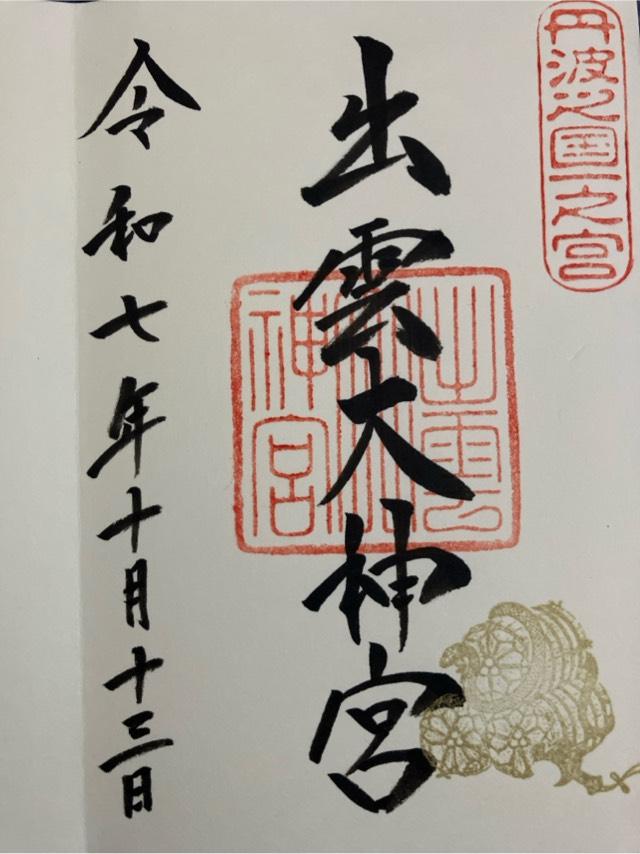 丹波之國一之宮
出雲大神宮
出雲大神宮
令和七年十月十三日